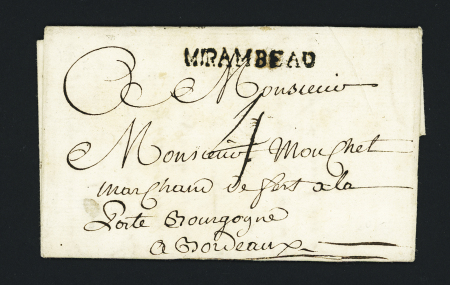 MIRAMBEAU
A Monsieur
4
Monsieur Mouchet
marchand de fert a la
Porte Bourgogne
a Bordeaux